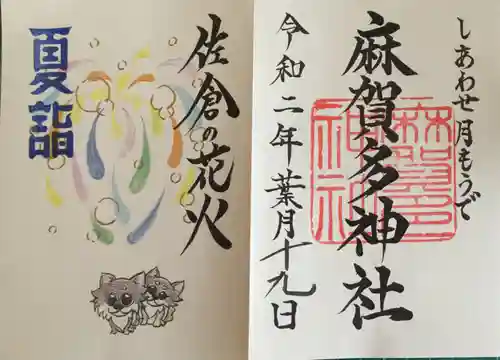 しあわせ月もうで
麻賀多神社
令和二年葉月十九日
佐倉の花火
夏詣